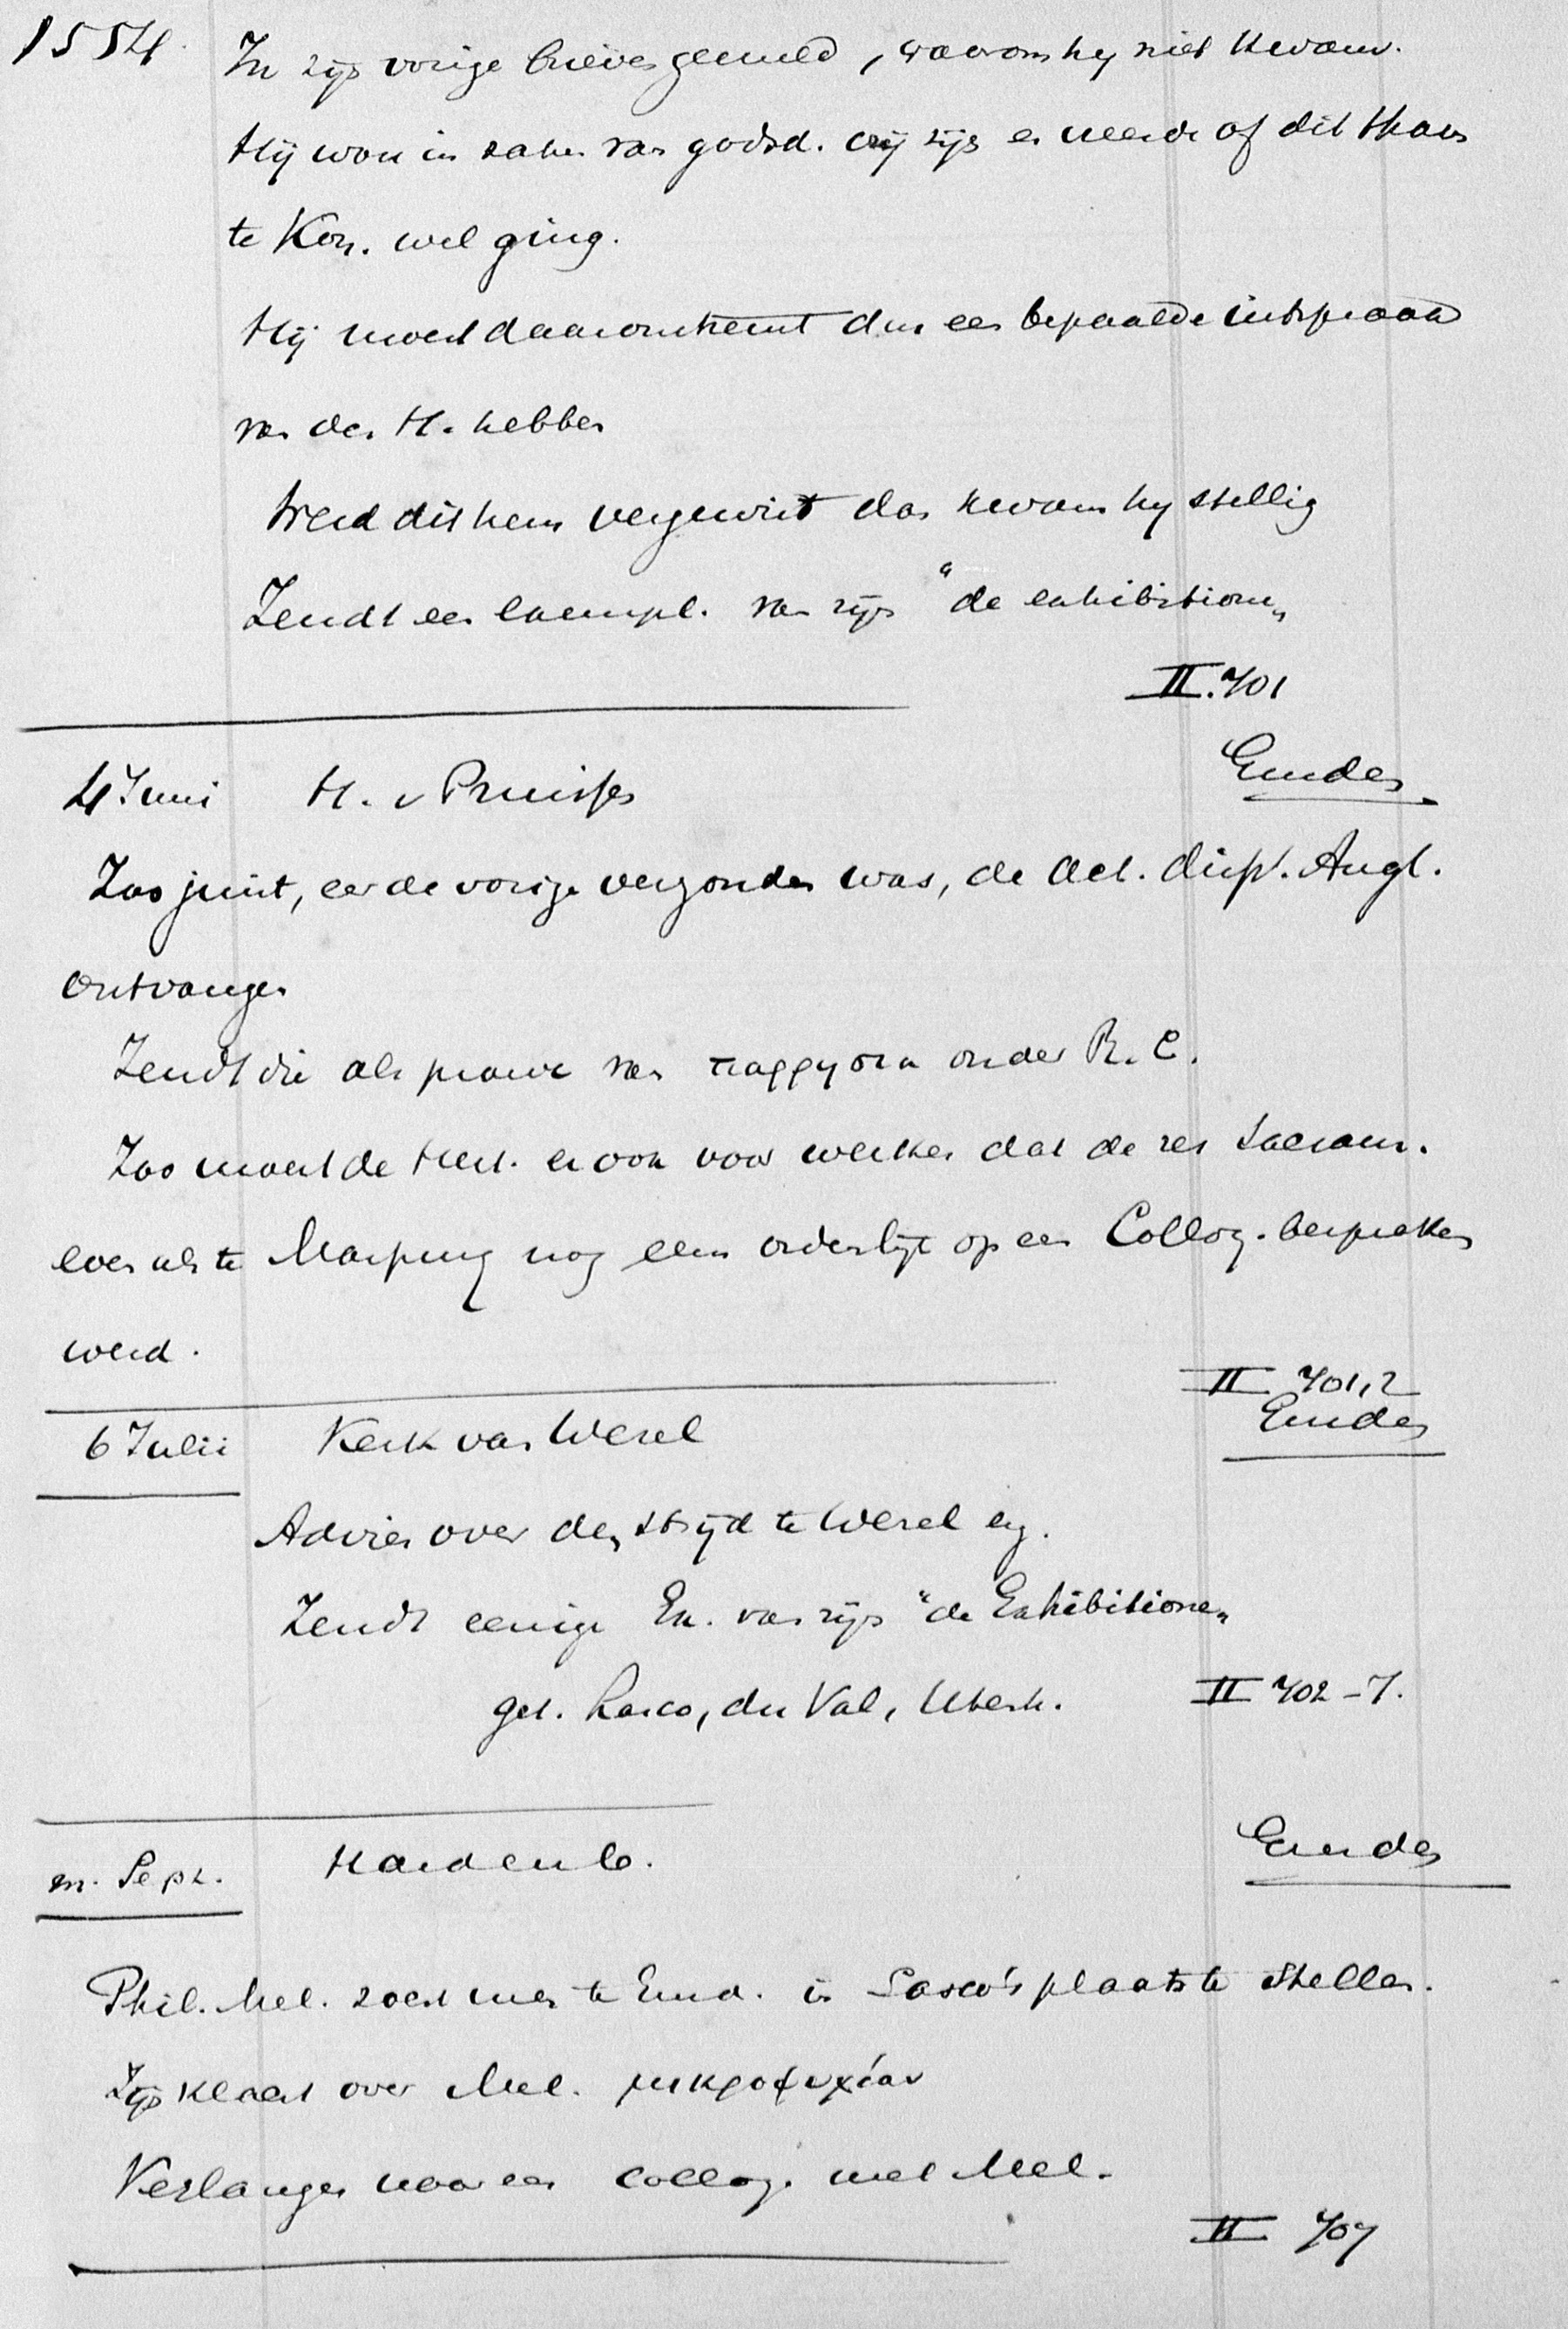 1554. In zijn vorige brieven gemeld, waarom hij niet kwam.
Hij wou in zaken van godsd. vrij zijn en meende of dit thans
te Kon. wel ging.
Hij moest daaromtrent dus een bepaalde uitspraak
van den H. hebben
Werd dit hem vergewist dan kwam hij stellig
Zendt een exempl. van zijn "de exhibitione"
II. 701
4 Juni H. v Pruissen Emden
Zoo juist, eer de vorige verzonden was, de Act. disp. Angl.
ontvangen
Zendt die als proeve van παρρησια onder R. C.
Zoo moest de Hert. er ook voor werken dat de res sacram.
even als te Marpurg nog eens ordelijk op een Colloq. besproken
werd.
II 701,2
6 Julii Kerk van Wesel Emden
Advies over den strijd te Wesel en z.
Zendt eenige Ex. van zijn "de Exhibitione"
get. Lasco, du Val, Utenh. II 702-7.
m. Sept. Hardenb. Emden
Phil. Mel. zoekt men te Emd. in Lasco's plaats te stellen.
Zijn klacht over Mel. μικροψυχίαν
Verlangen naar een colloq. met Mel.
II 707